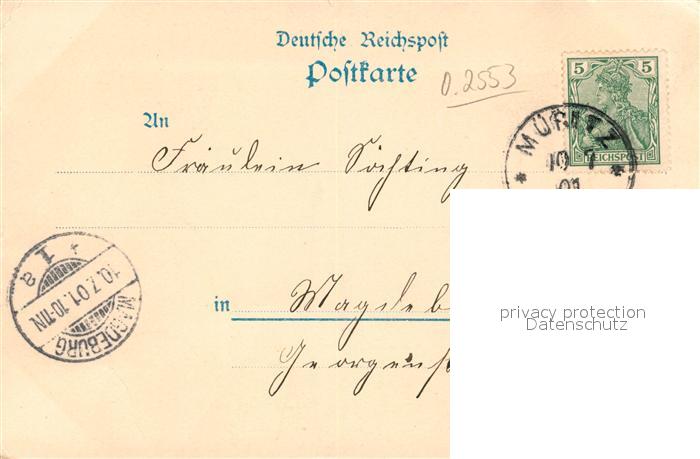 Deutsche Reichspost
Postkarte
0.2553
5 5
REICHSPOST
MÜRITZ
10 7
01
An
Fräulein Söchting
MAGDEBURG
10.7.01.10-11N
1
a
in Magdeb
Georgenst
privacy protection
Datenschutz